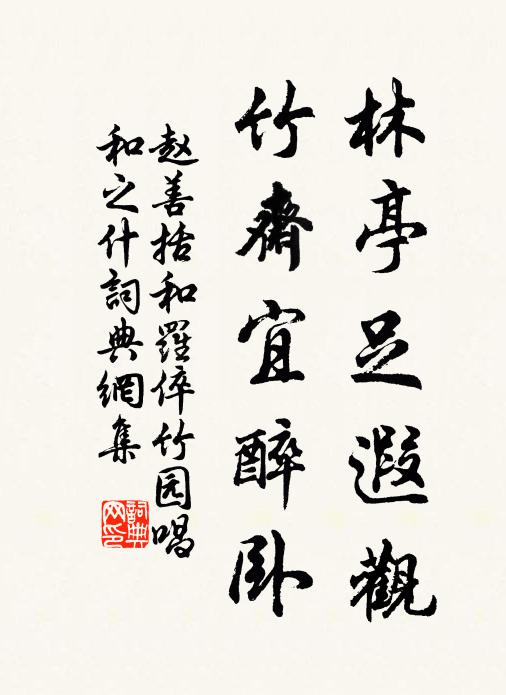 林亭足遐觀
竹齋宜醉卧
赵善括和羅倅竹园唱
和之什詞典網集
詞典网印